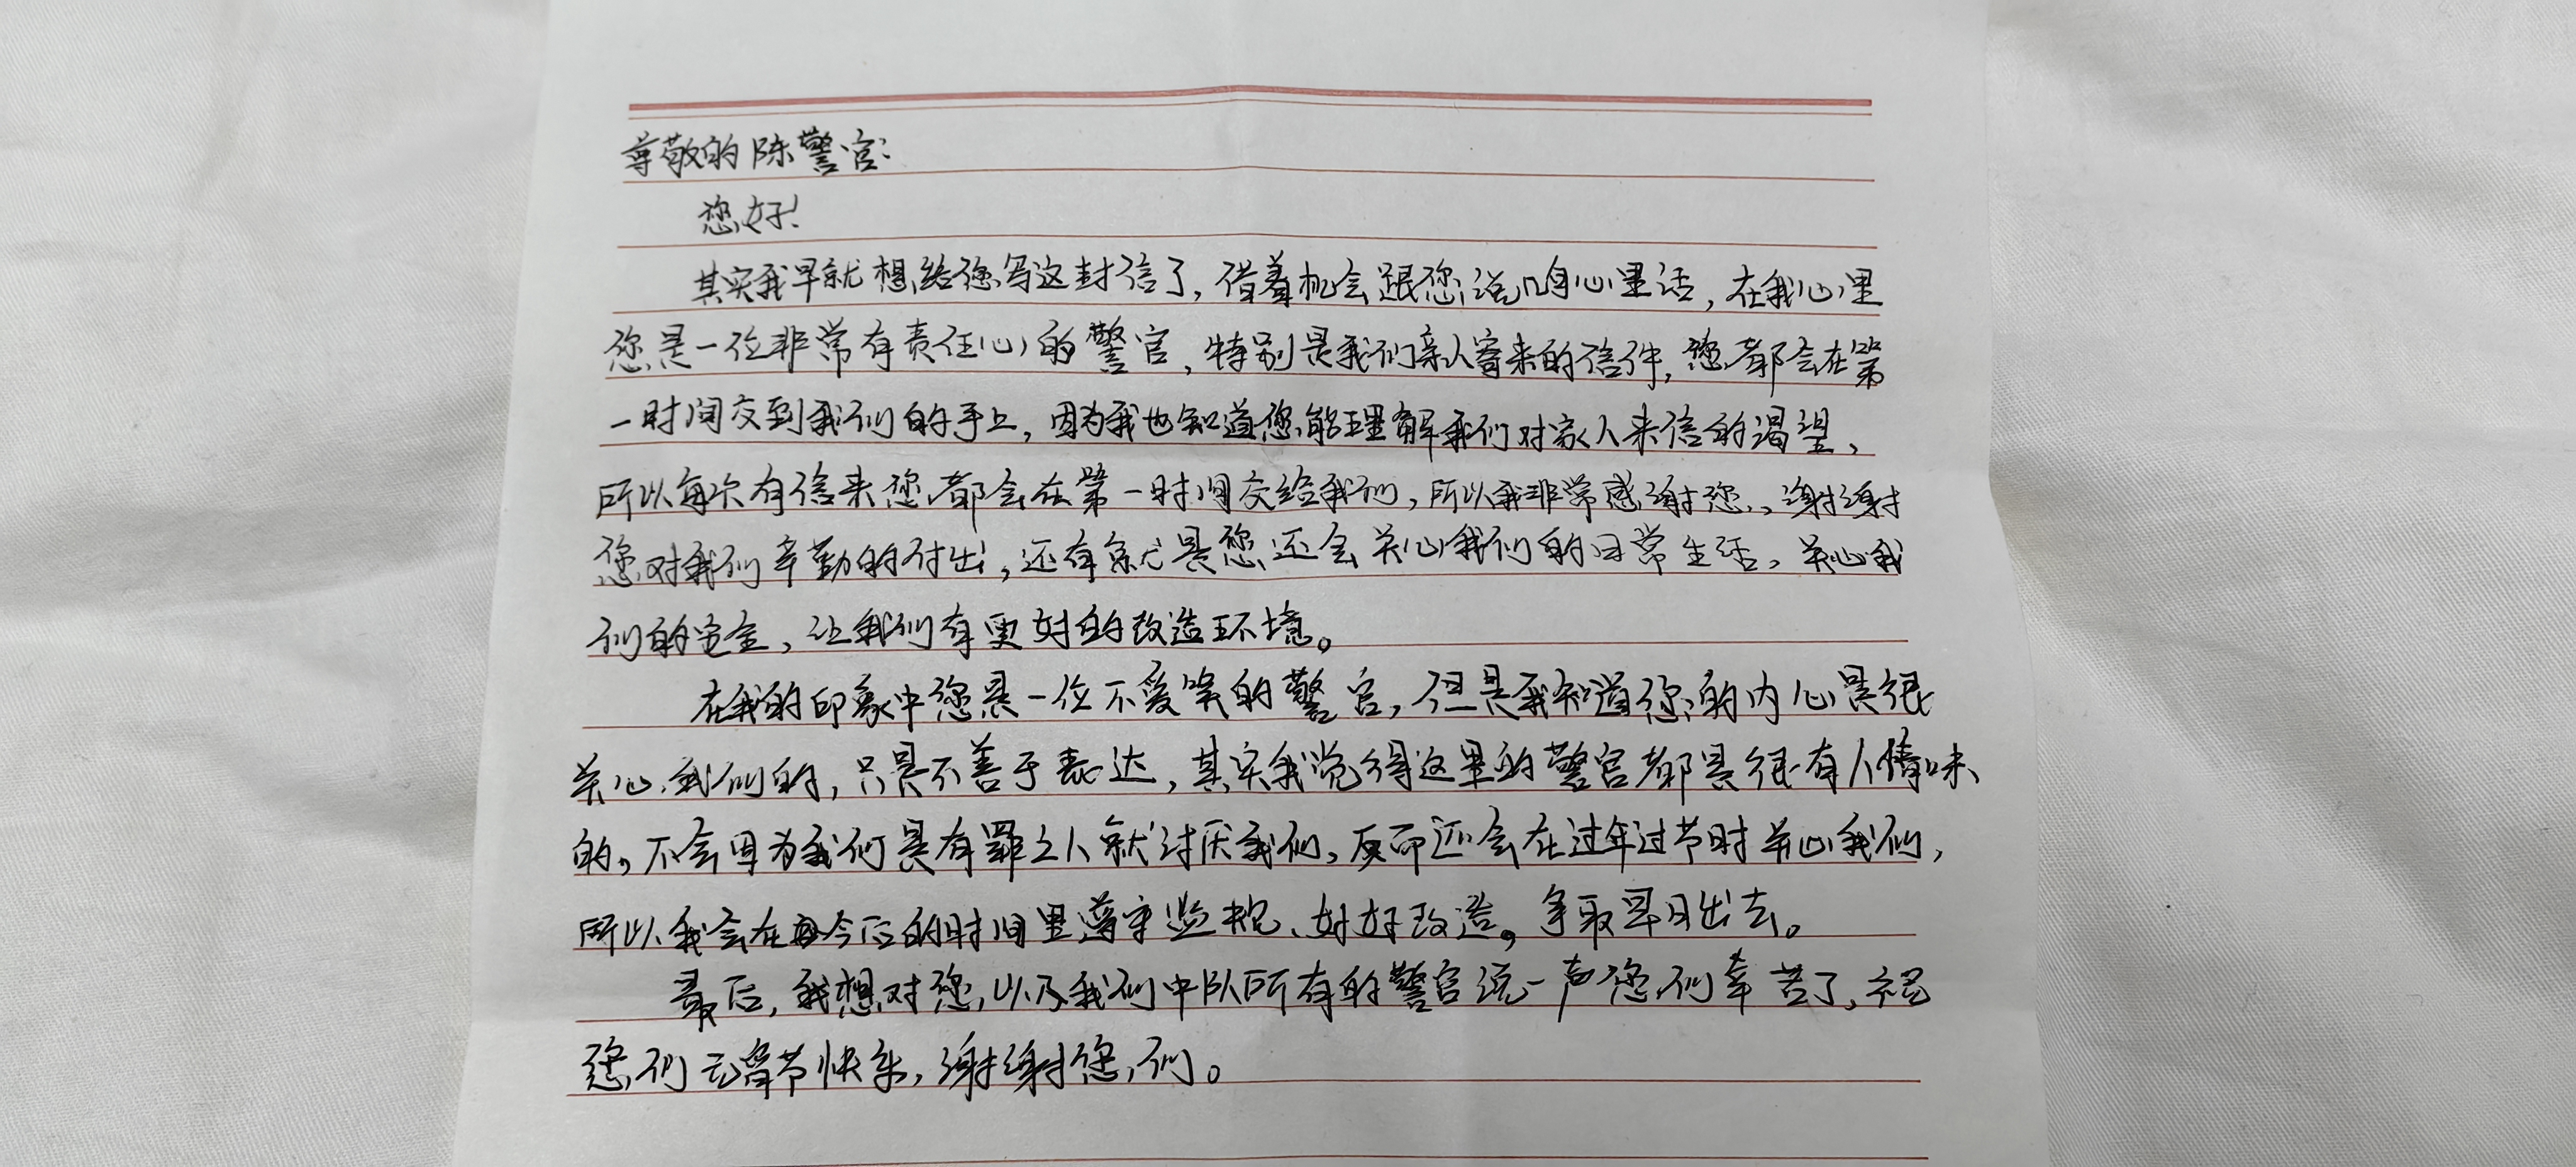 尊敬的陈警官：
您好！
其实我早就想给您写这封信了，借着机会跟您说几句心里话，在我心里
您是一位非常有责任心的警官，特别是我们亲人寄来的信件，您都会在第
一时间交到我们的手上，因为我也知道您能理解我们对家人来信的渴望，
所以每次有信来您都会在第一时间交给我们，所以我非常感谢您，谢谢
您对我们辛勤的付出，还有就是您还会关心我们的日常生活，关心我
们的安全，让我们有更好的改造环境。
在我的印象中您是一位不爱笑的警官，但是我知道您的内心是很
关心我们的，只是不善于表达，其实我觉得这里的警官都是很有人情味
的，不会因为我们是有罪之人就讨厌我们，反而还会在过年过节时关心我们，
所以我会在今后的时间里遵守监规、好好改造。争取早日出去。
最后，我想对您以及我们中队所有的警官说一声您们辛苦了，祝
您们元宵节快乐，谢谢您们。